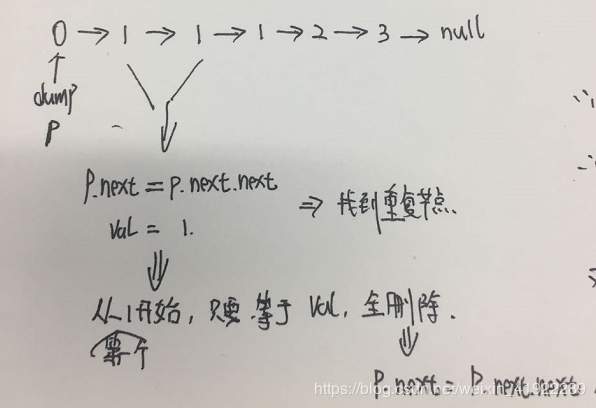 0 → 1 → 1 → 1 → 2 → 3 → null
dump
P
P.next = P.next.next
Val = 1.
⇒ 找到重复节点.
从1开始, 只要等于 Val, 全删除.
第一个
P.next = P.next.next
https://blog.csdn.net/weixin_41922289